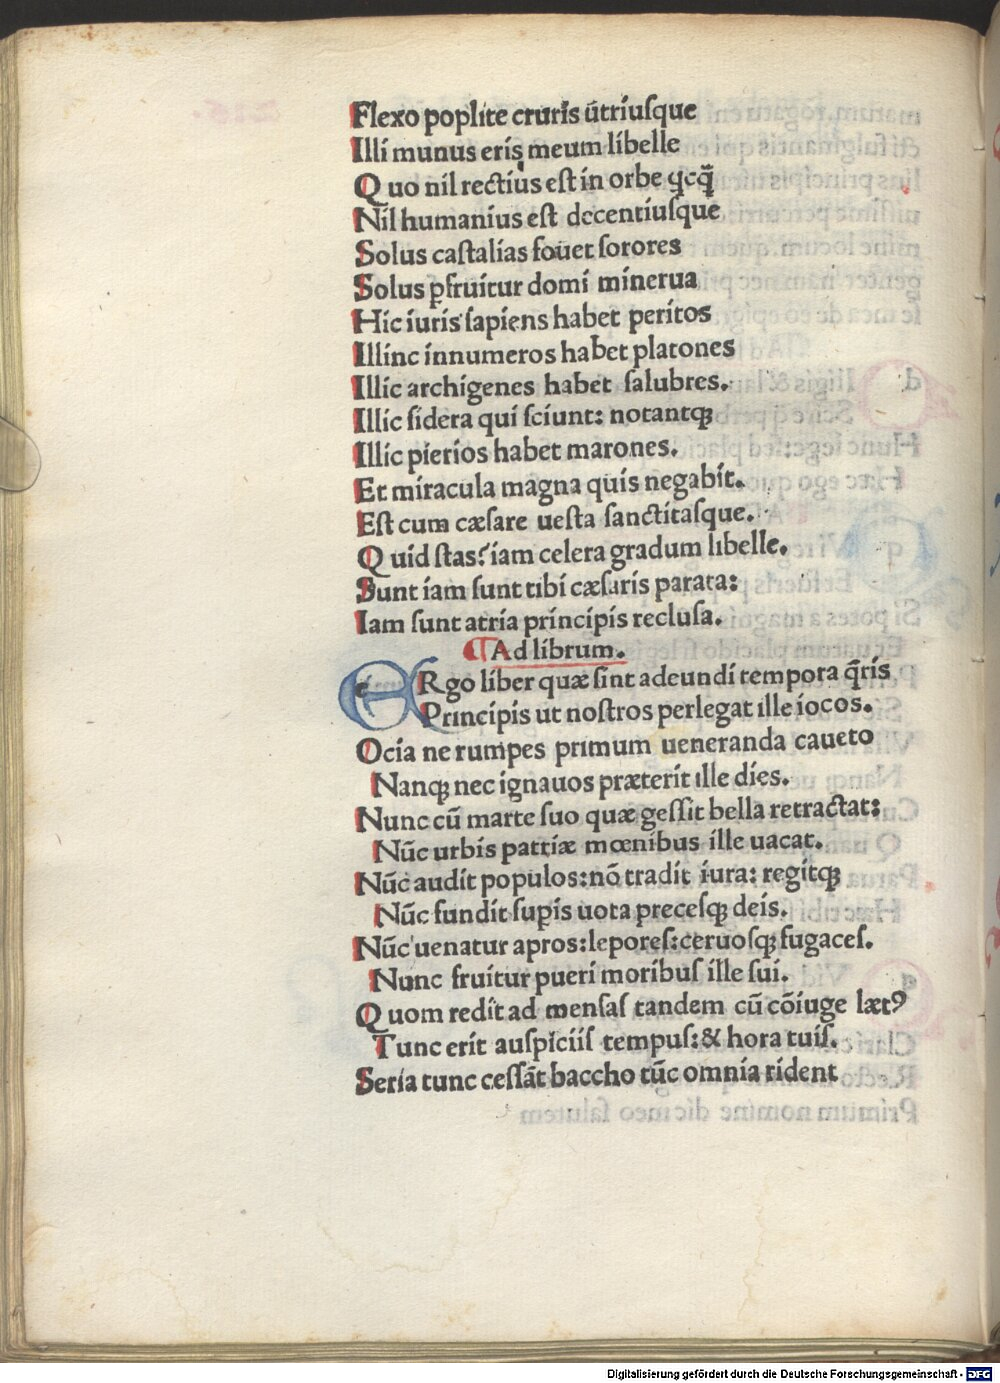 Flexo poplite cruris ūtriuſque
Illi munus eris meum libelle
Quo nil rectius eſt in orbe ꝙcꝗ̄
Nil humanius eſt decentiuſque
Solus caſtalias fouet ſorores
Solus ꝑfruitur domi minerua
Hic iuris ſapiens habet peritos
Illinc innumeros habet platones
Illic archigenes habet ſalubres.
Illic ſidera qui ſciunt: notantqꝫ
Illic pierios habet marones.
Et miracula magna quis negabit.
Eſt cum cæſare ueſta ſanctitaſque.
Quid ſtas? iam celera gradum libelle.
Sunt iam ſunt tibi cæſaris parata:
Iam ſunt atria principis recluſa.
¶ Ad librum.
ERgo liber quæ ſint adeundi tempora q̄ris
Principis ut noſtros perlegat ille iocos.
Ocia ne rumpes primum ueneranda caueto
Nanqꝫ nec ignauos præterit ille dies.
Nunc cū marte ſuo quæ geſſit bella retractat:
Nūc urbis patriæ mœnibus ille uacat.
Nūc audit populos: nō tradit iura: regitqꝫ
Nūc fundit ſuꝑis uota preceſqꝫ deis.
Nūc uenatur apros: leporeſ: ceruoſqꝫ fugaceſ.
Nunc fruitur pueri moribuſ ille ſui.
Quom redit ad menſaſ tandem cū cōiuge lætꝰ
Tunc erit auſpiciiſ tempuſ: & hora tuiſ.
Seria tunc ceſſāt baccho tūc omnia rident
Digitalisierung gefördert durch die Deutsche Forschungsgemeinschaft - DFG